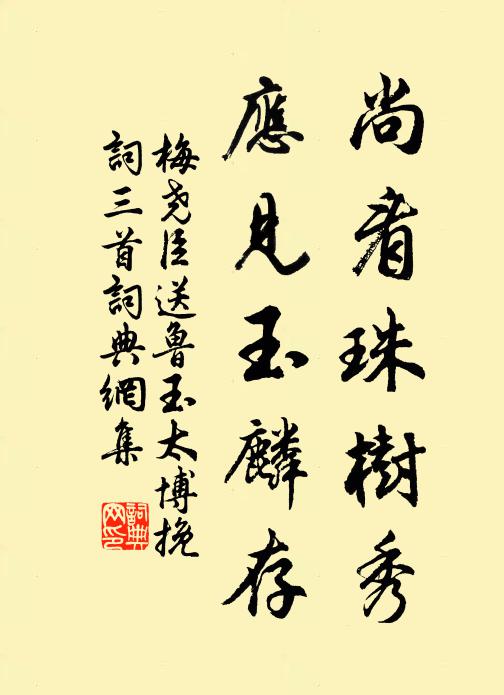 尚看珠樹秀
應見玉麟存
梅堯臣送魯玉太博挽
詞三首詞典網集
詞典
网印